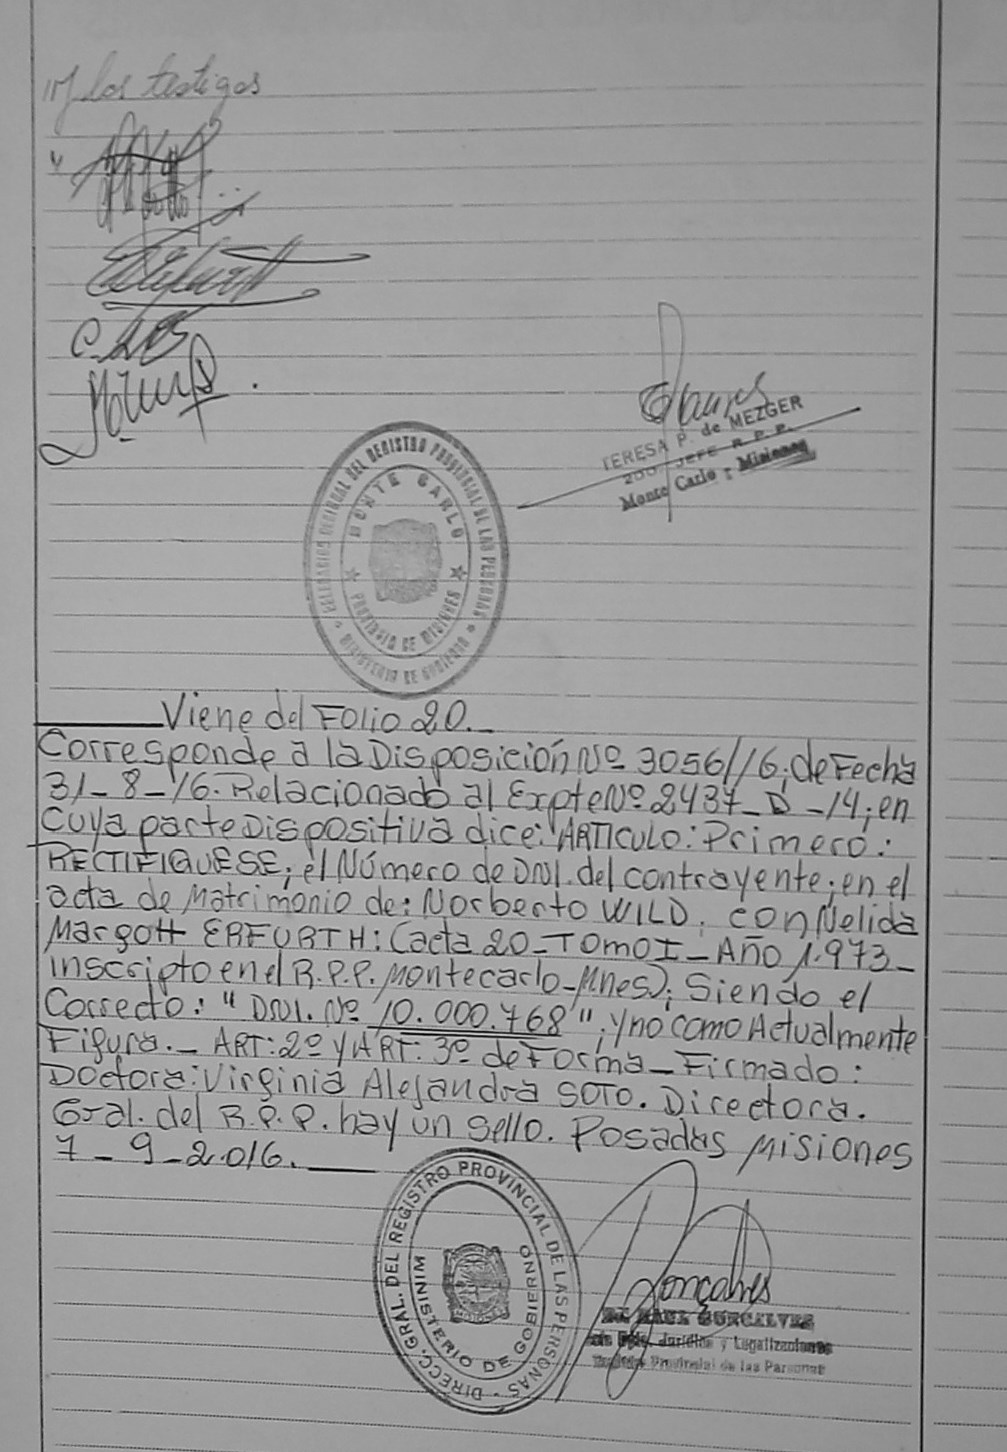 los testigos
TERESA P. de MEZGER
2DO. JEFE R. P. P.
Monte Carlo - Misiones
DELEGACION REGIONAL DEL REGISTRO PROVINCIAL DE LAS PERSONAS
MONTE CARLO
PROVINCIA DE MISIONES
MINISTERIO DE GOBIERNO
Viene del Folio 20._
Corresponde a la Disposición Nº 3056/16; de Fecha
31_8_16. Relacionado al Expte Nº 2437_D_14; en
Cuya parte Dispositiva dice: "ARTICULO: Primero:
RECTIFIQUESE; el Número de DNI. del contrayente; en el
acta de Matrimonio de: Norberto WILD, con Nelida
Margott ERFURTH: (acta 20_TOMO I_Año 1.973_
inscripto en el R.P.P. Montecarlo_Mnes); Siendo el
Correcto: "DNI. Nº 10.000.768", y no como Actualmente
Figura._ ART: 2º y ART: 3º de Forma_Firmado:
Doctora: Virginia Alejandra SOTO. Directora.
Gral. del R.P.P. hay un sello. Posadas Misiones
7_9_2.016.
DIRECC. GRAL. DEL REGISTRO PROVINCIAL DE LAS PERSONAS
MINISTERIO DE GOBIERNO
Gonçalves
RAUL GONCALVES
Dpto. Jurídico y Legalizaciones
Provincial de las Personas